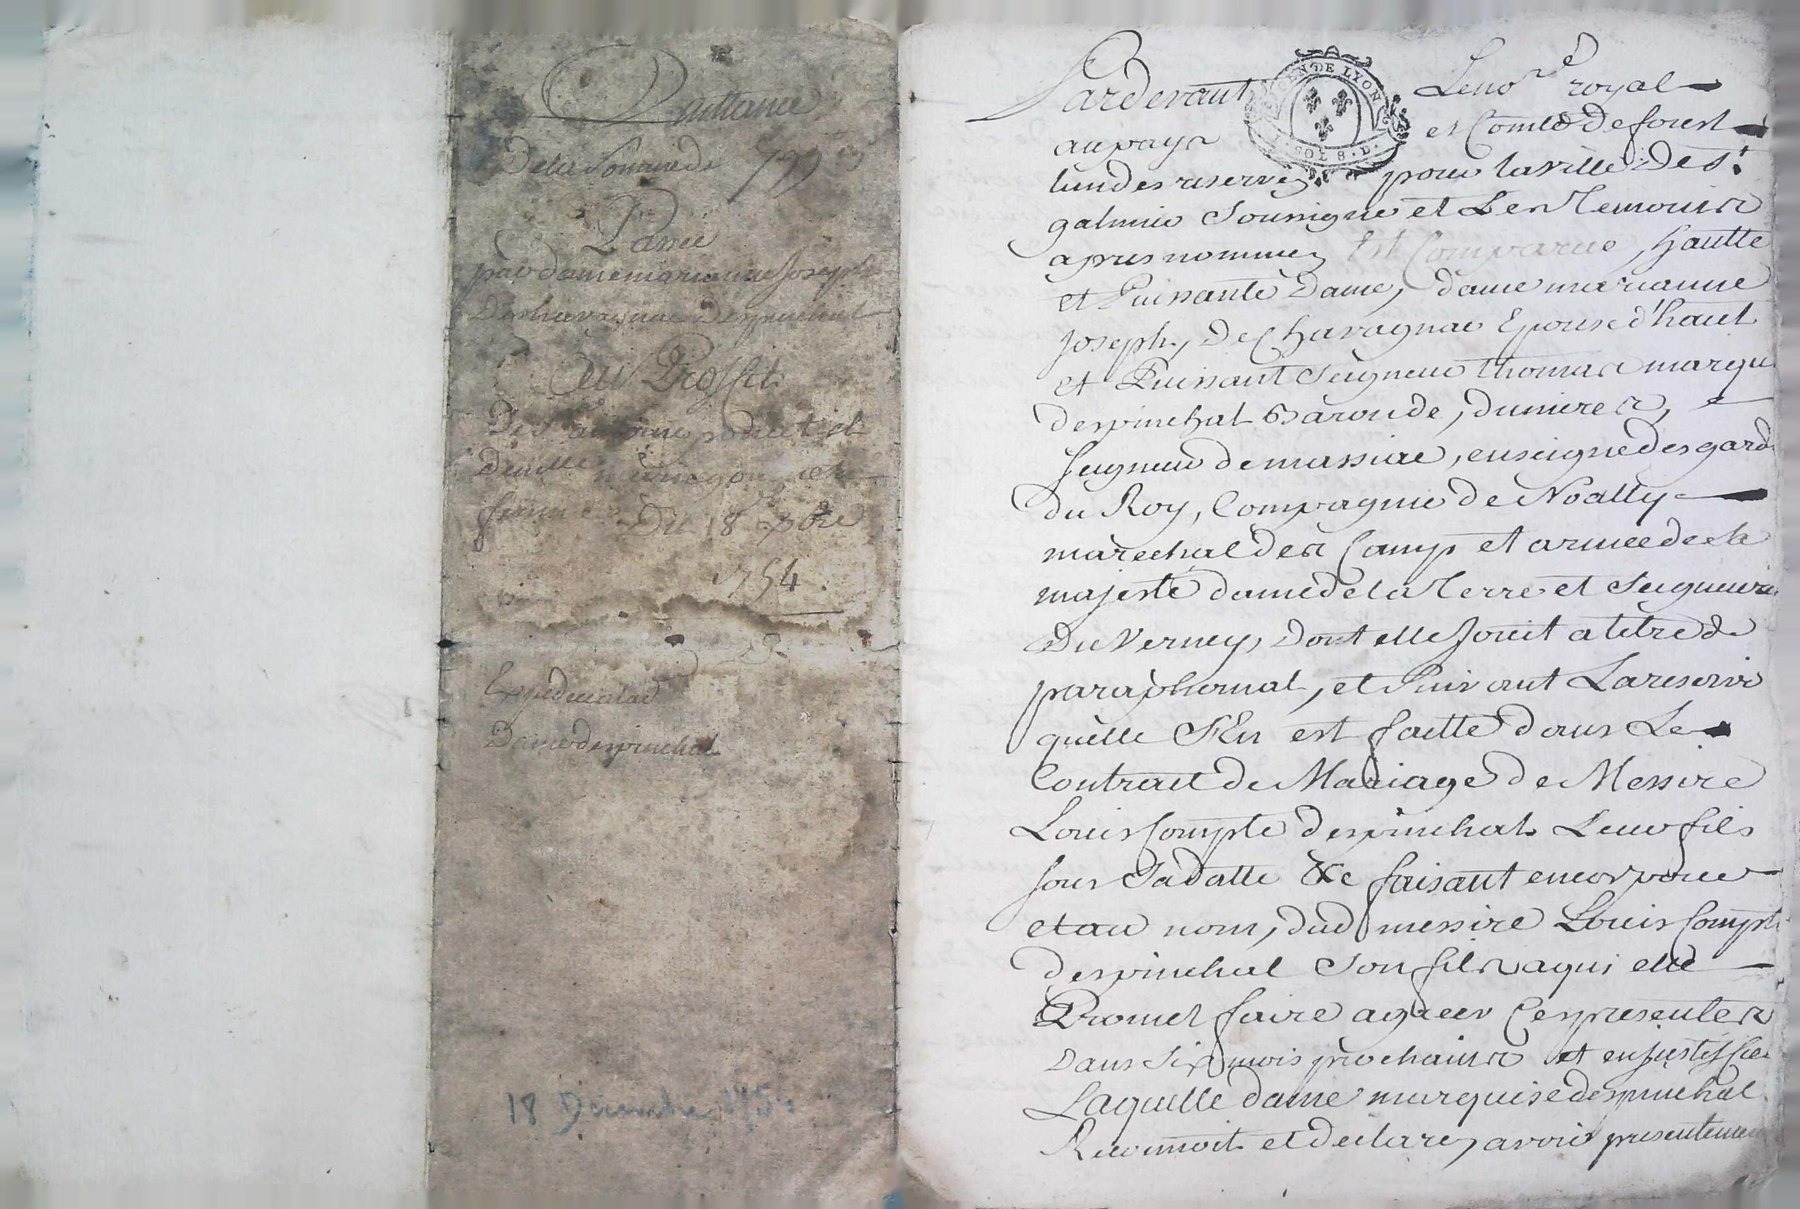 Quittance
De la somme de 799
Passée
par dame marianne Joseph
De chavagnac Despinchal
Au Proffit
De
Du 18 xbre
1754.
Expedié a lad
Dame despinchal
18 Decembre 1754
Pardevant Le no.re royal
GEN DE LYON
SOLS D.
au pays et Comté de forest
lun des reservés pour la ville De St
galmier Soussigné et Les Temoins
apres nommés Est Comparue, haute
et Puissante Dame, dame marianne
Joseph, De Chavagnac Epouse d'haut
et Puissant Seigneur thomas marqu
despinchal Baron de, dunieres,
seigneur de massiac, enseigne des gard
du Roy, Compagnie de Noally
maréchal des Camp et armée de sa
majesté dame de la Terre et Seigneurie
Du Verney, Dont elle Jouit a titre de
paraphernal, et Suivant La reserve
quelle S'En est faitte dans Le
Contract de Mariage de Messire
Louis Compte despinchal Leur fils
sous Sa datte &c faisant encor pour
et au nom, dud messire Louis Compte
despinchal Son fils a qui elle
Promet faire agreer Ces presentes
Dans Six mois prochains et en justiffier
Laquelle dame marquise despinchal
Reconnoit et declare, avoir presentement